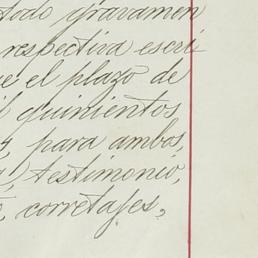 todo gravamen
respectiva escri
el plazo de
quinientos
para ambos,
testimonio,
corretajes,